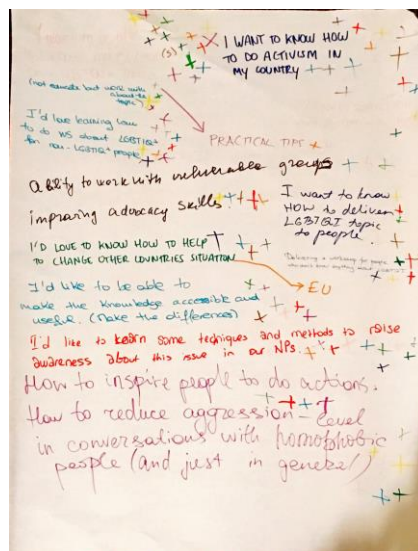 I WANT TO KNOW HOW
TO DO ACTIVISM IN
MY COUNTRY
(not educate but work with
about the
topic)
I'd love learning how
to do WS about LGBTIQ+
for non-LGBTIQ+ people
PRACTICAL TIPS
Ability to work with vulnerable groups
improving advocacy skills.
I want to know
HOW to deliver
LGBTIQI topic
to people.
I'D LOVE TO KNOW HOW TO HELP
TO CHANGE OTHER COUNTRIES SITUATION
Delivering a workshop for people
who don't know anything about LGBTQI
EU
I'd like to be able to
make the knowledge accessible and
useful. (Make the differences)
I'd like to learn some techniques and methods to raise
awareness about this issue in our NPs.
How to inspire people to do actions.
How to reduce aggression-level
in conversations with homophobic
people (and just in general)